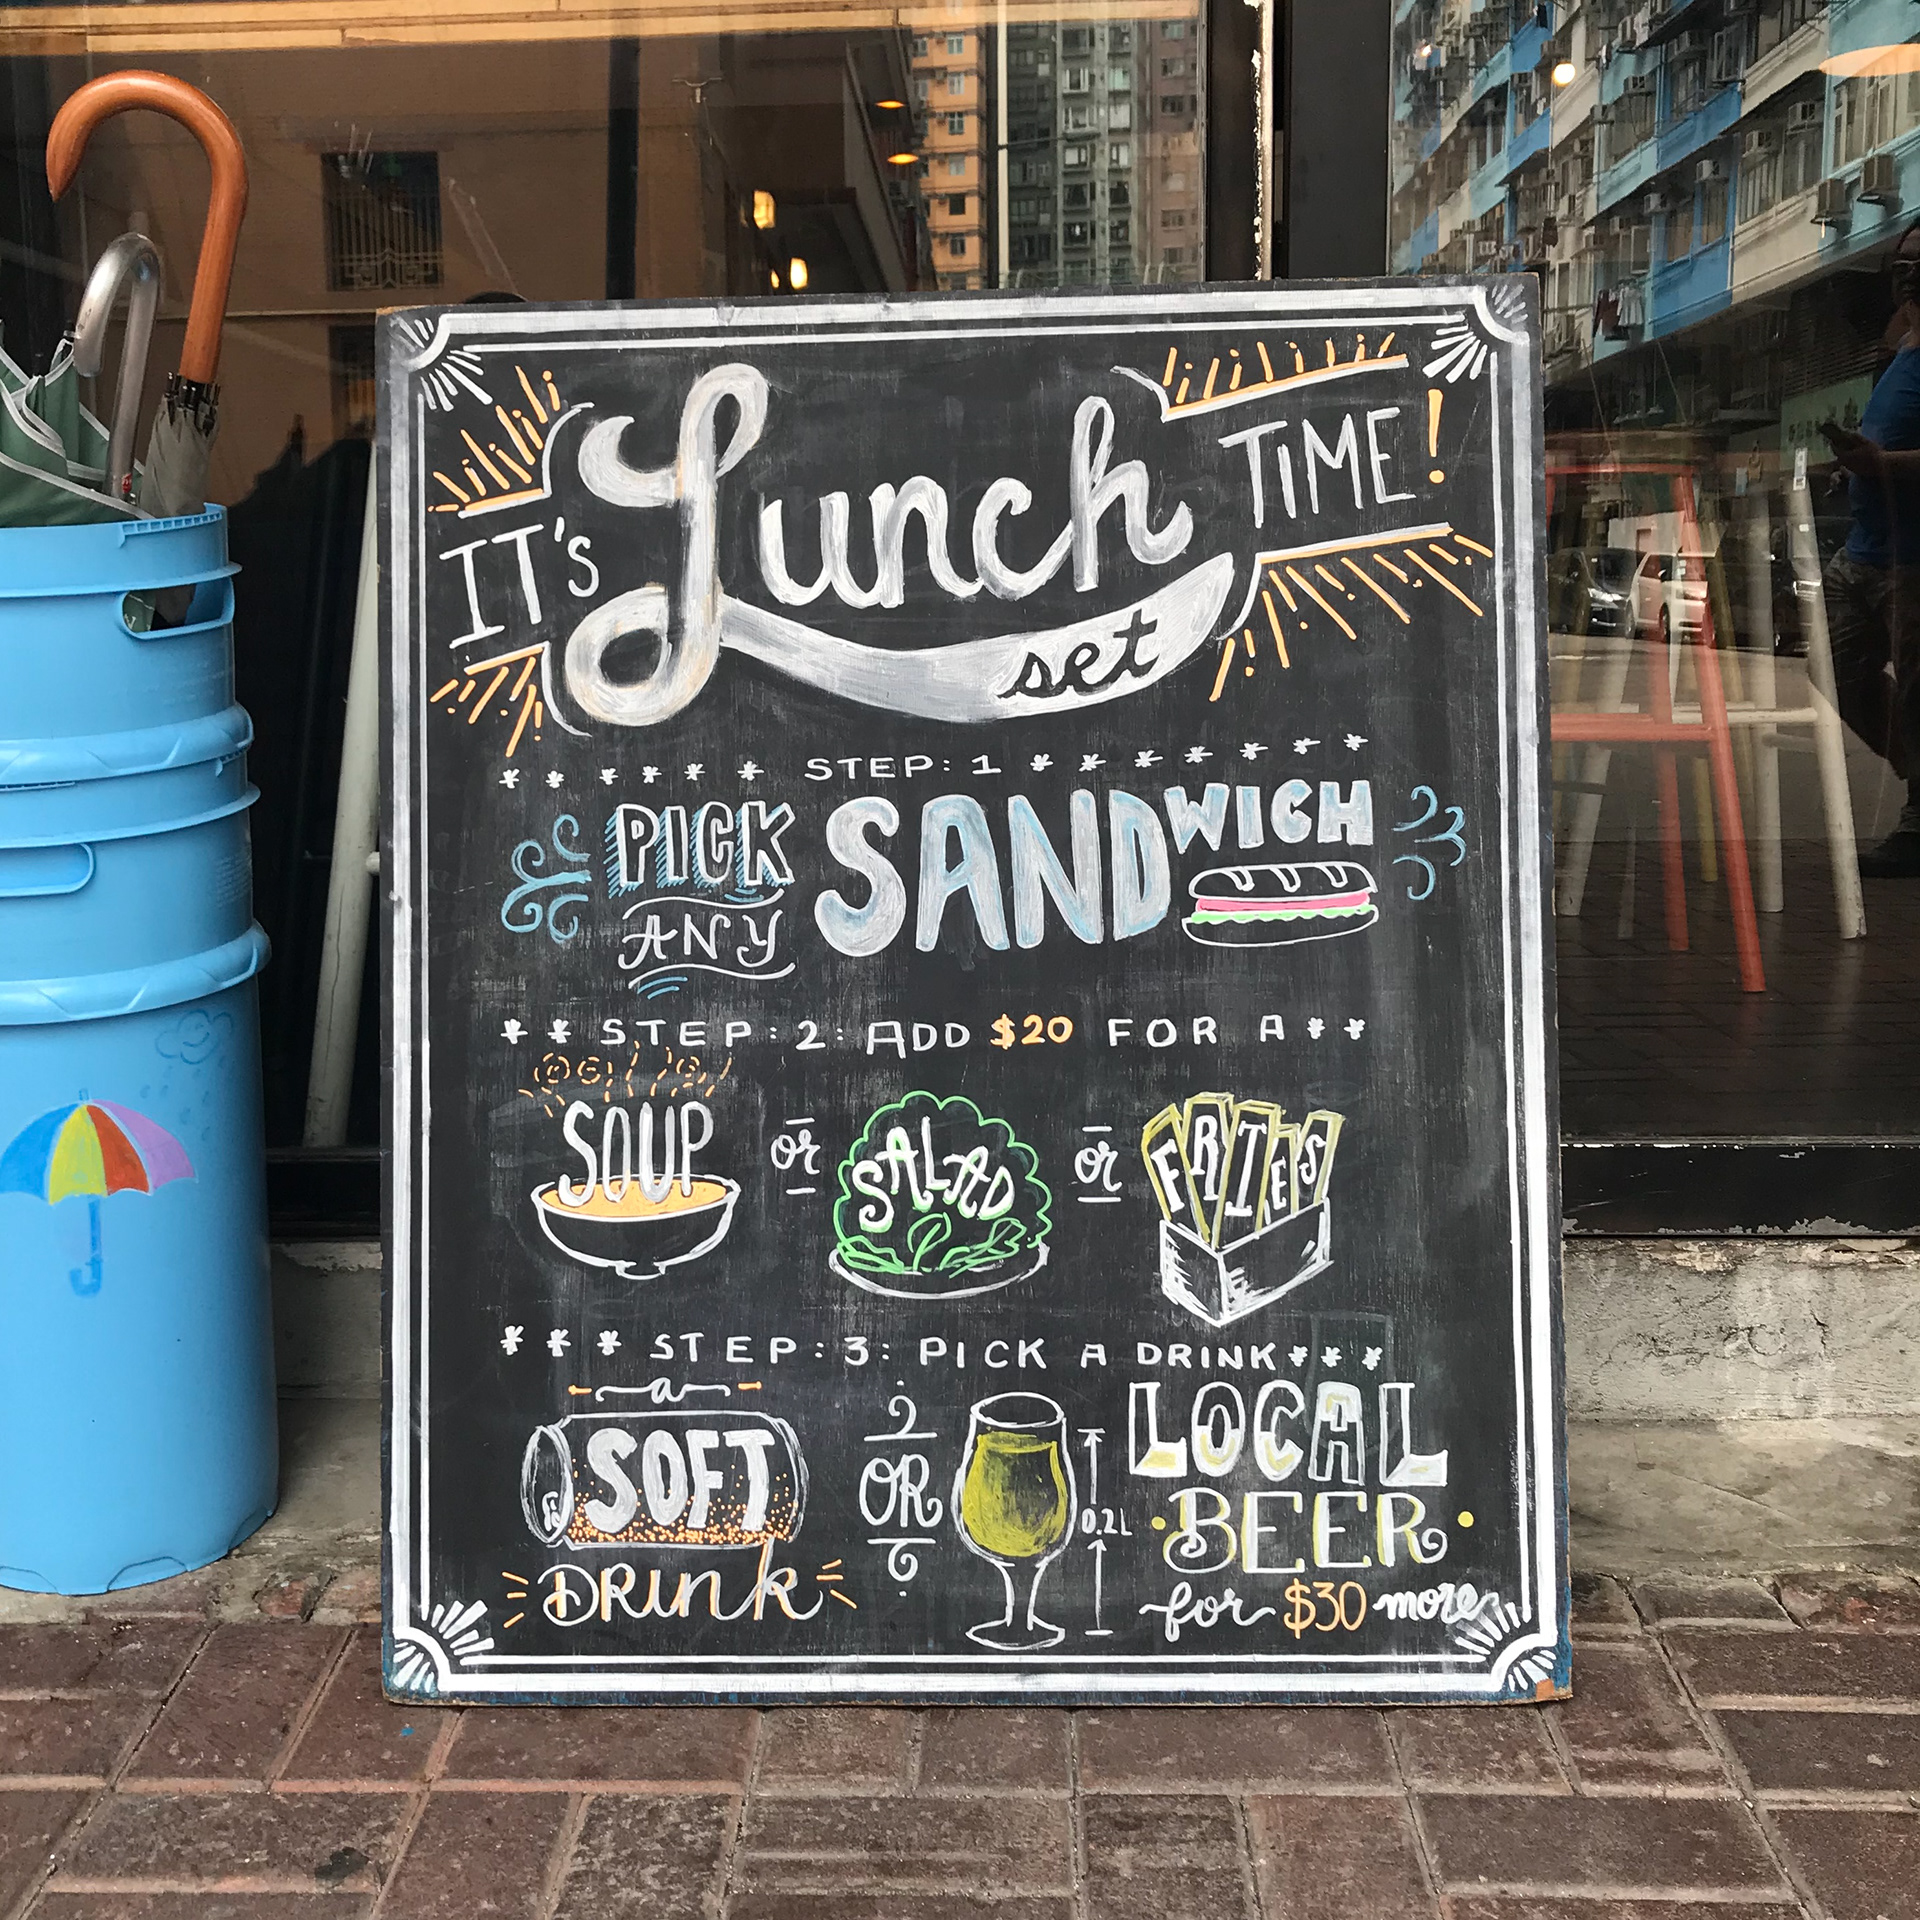 IT'S Lunch TIME!
set
STEP: 1
PICK ANY SANDWICH
STEP: 2: ADD $20 FOR A
SOUP or SALAD or FRIES
STEP: 3: PICK A DRINK
a
SOFT
DRINK
OR
0.2L
LOCAL
BEER
for $30 more